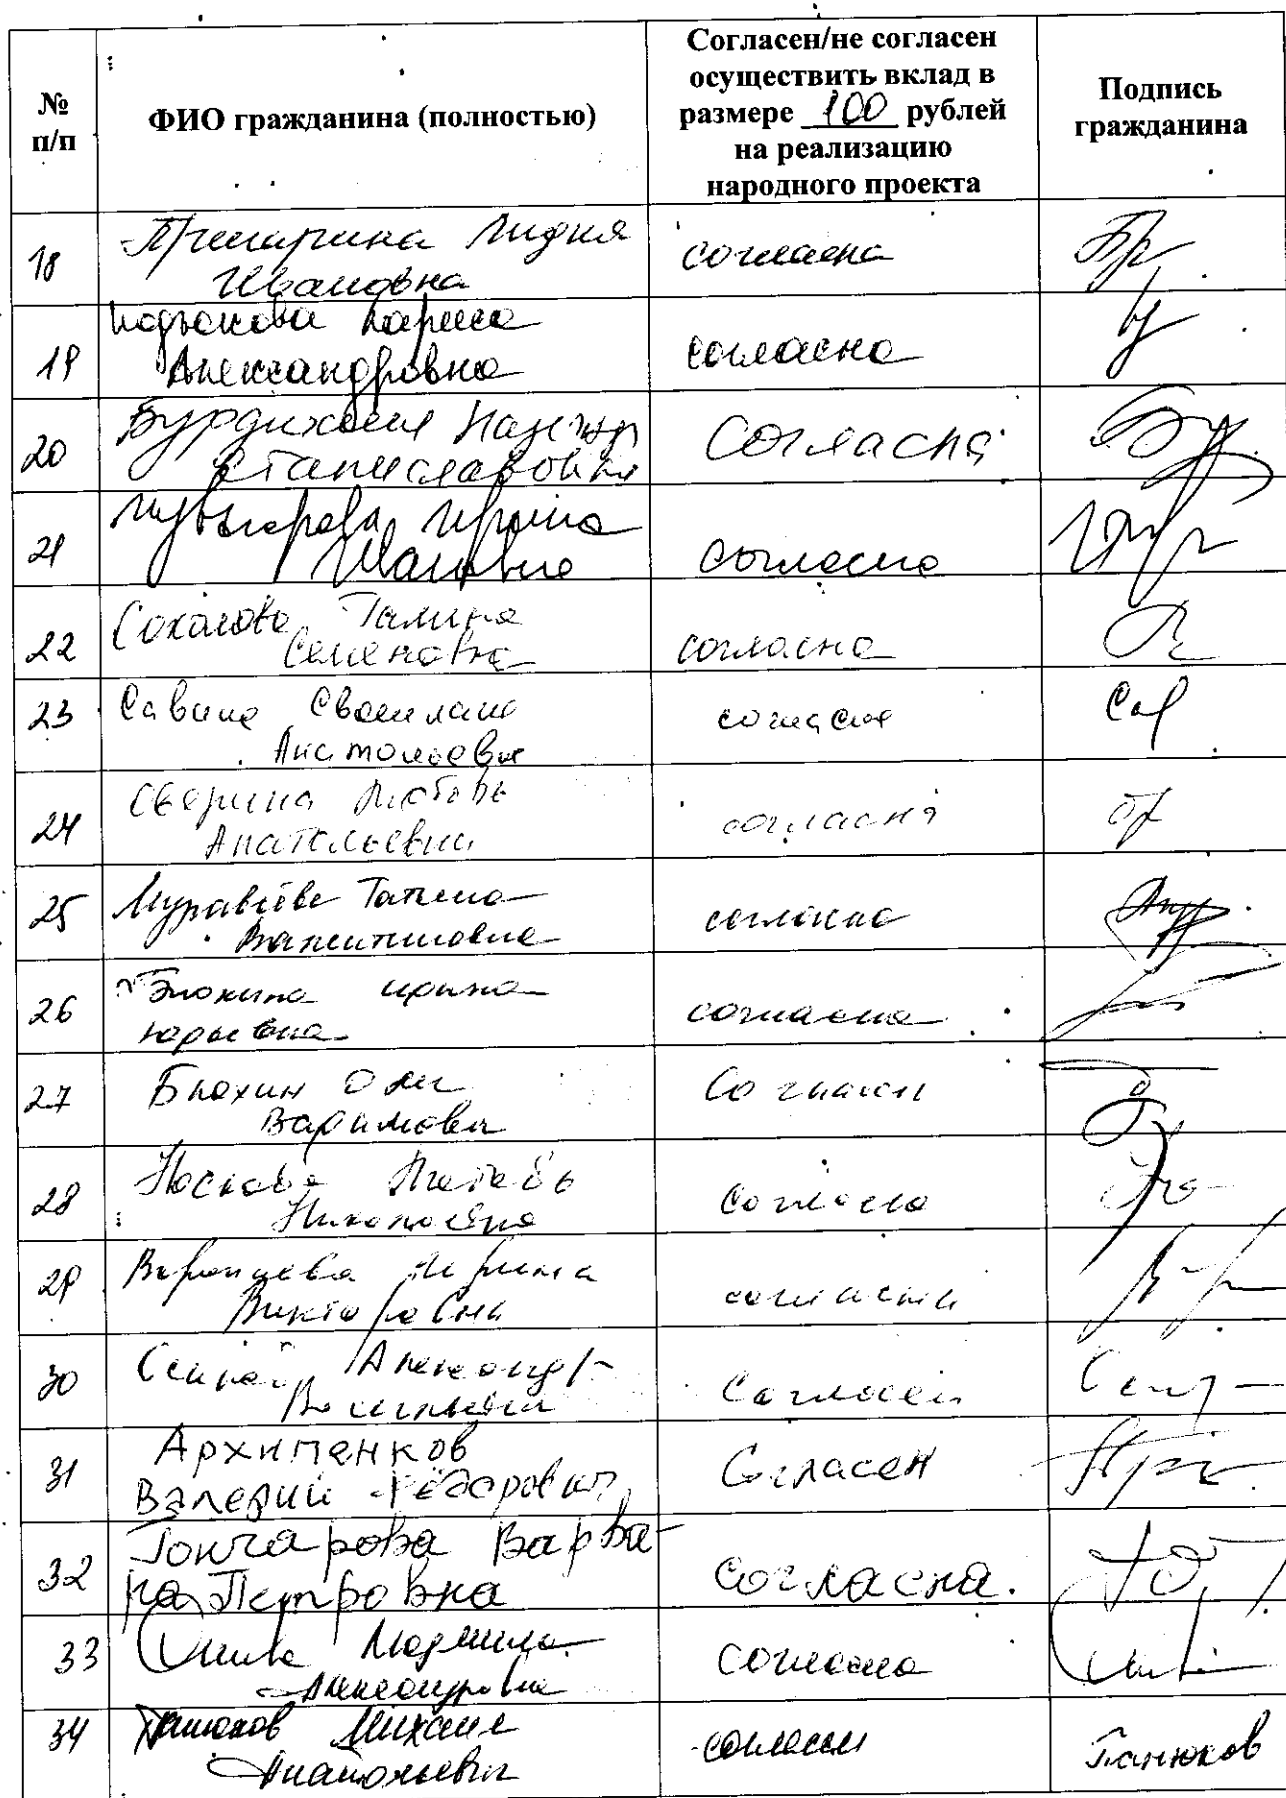 № п/п
ФИО гражданина (полностью)
Согласен/не согласен
осуществить вклад в
размере 100 рублей
на реализацию
народного проекта
Подпись
гражданина
18
Лидия
Ивановна
согласна
19
Лариса
Александровна
согласна
20
Станиславовна
согласна
21
Ирина
Ивановна
согласна
22
Соколова Галина
Семеновна
согласна
23
Савина Светлана
Анатольевна
согласна
Сав
24
Любовь
Анатольевна
согласна
25
Муравьёва Татьяна
Валентиновна
согласна
26
Ирина
Юрьевна
согласна
27
Блохин Олег
Вадимович
Согласен
28
Носкова Любовь
Николаевна
согласна
29
Воронцова Ирина
Викторовна
согласна
30
Александр
Васильевич
Согласен
31
Архипенков
Валерий Фёдорович
Согласен
32
Гончарова Варва-
ра Петровна
согласна.
33
Людмила
Александровна
согласна
34
Панюков Михаил
Анатольевич
согласен
Панюков